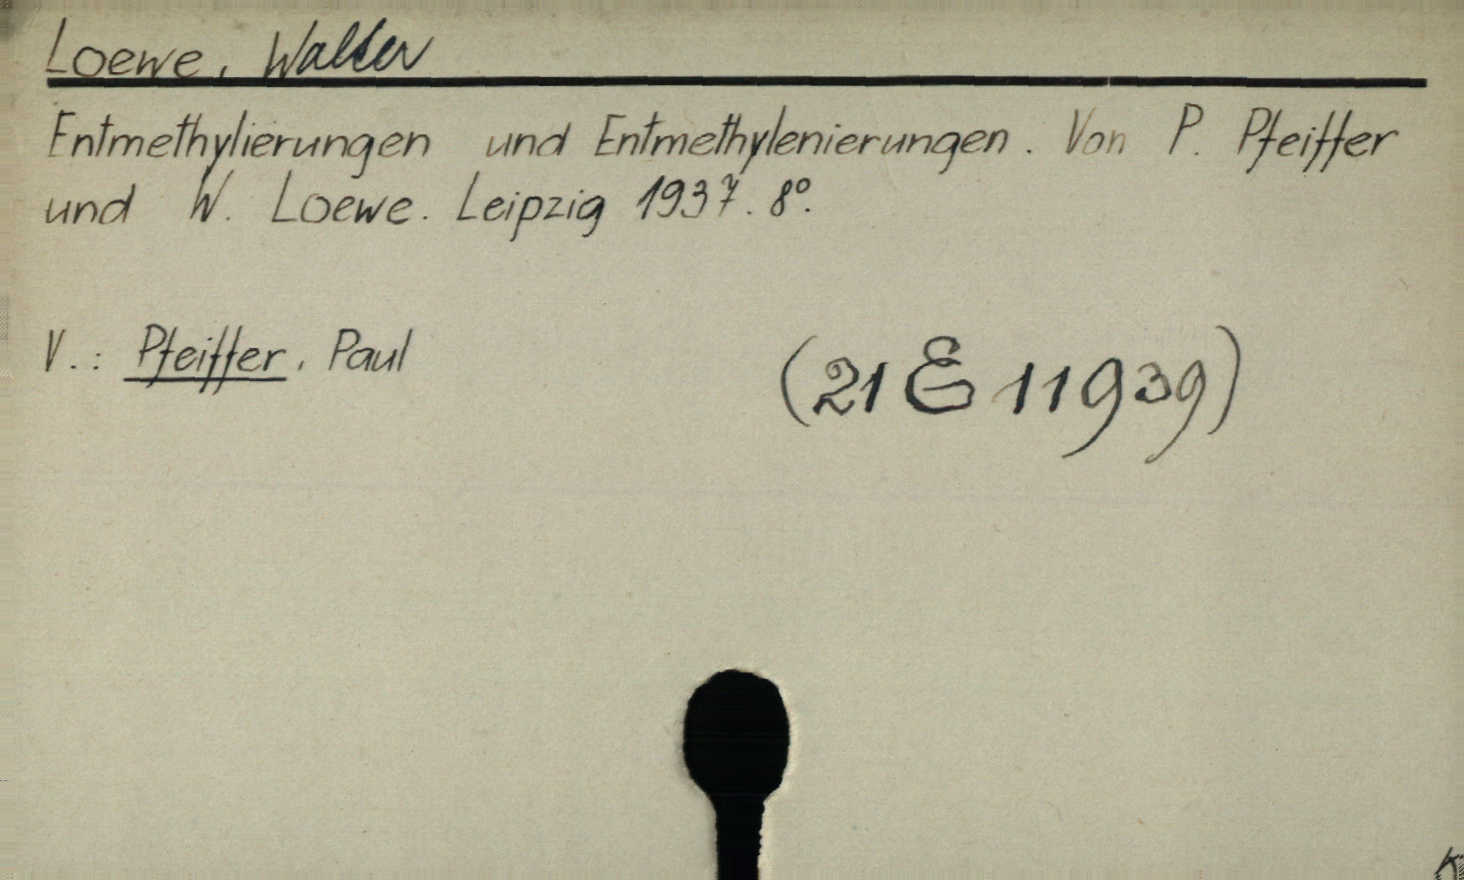 Loewe, Walter
Entmethylierungen und Entmethylenierungen. Von P. Pfeiffer
und W. Loewe. Leipzig 1937. 8°.
V.: Pfeiffer, Paul
(21 E 11939)